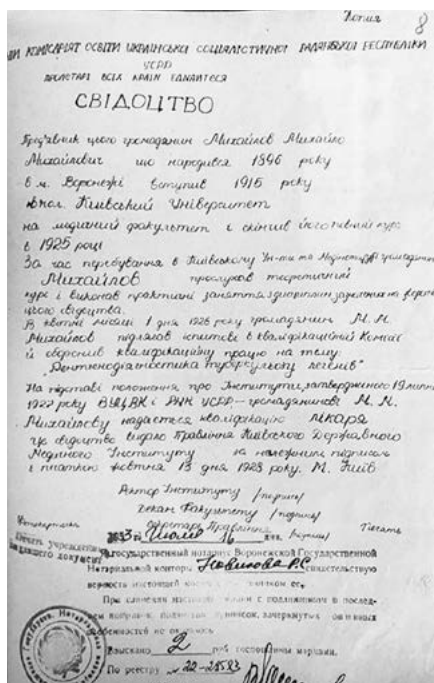 Копия
8
КОМІСАРІАТ ОСВІТИ УКРАЇНСЬКОЇ СОЦІАЛІСТИЧНОЇ РАДЯНСЬКОЇ РЕСПУБЛІКИ
УСРР
ПРОЛЕТАРІ ВСІХ КРАЇН ЄДНАЙТЕСЯ
СВІДОЦТВО
Пред'явник цього громадянин Михайлов Михайло
Михайлович що народився 1896 року
в м. Воронежі вступив 1915 року
Київський Університет
на медичний факультет і скінчив його повний курс
в 1925 році
За час перебування в Київському Ун-ті та Медінституті громадянин
Михайлов прослухав теоретичний
курс і виконав практичні заняття з дисциплін зазначених на
цього свідоцтва.
В квітні місяці 1 дня 1928 року громадянин М. М.
Михайлов підлягав іспитові в кваліфікаційній Комісії
й оборонив кваліфікаційну працю на тему:
„Рентгенодіагностика туберкульозу легенів"
На підставі положення про Інститути, затвердженого 19 липня
1922 року ВУЦВК і РНК УСРР – громадянинові М. М.
Михайлову надається кваліфікацію лікаря
Це свідоцтво видало Правління Київського Державного
Медичного Інституту за належним підписом
і печаткою жовтня 13 дня 1928 року. М. Київ
Ректор Інституту /подпись/
Декан Факультету /подпись/
Секретар Правління /подпись/
Печать
1953 г. Июля 16 дня.
Печать учреждения
выдавшего документ
Государственный нотариус Воронежской Государственной
Нотариальной конторы Новикова Р.С. свидетельствую
верность настоящей копии с подлинником ее.
При сличении настоящей копии с подлинником в послед-
нем поправок, подчисток, приписок, зачеркнутых слов и иных
особенностей не оказалось
Взыскано 2 руб. госпошлины марками.
По реестру № 22-28583